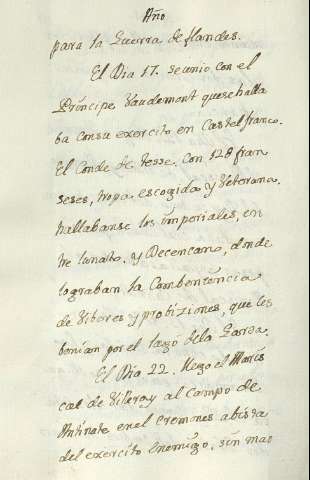 Año
para la Guerra de flandes.
El Dia 17. se unio con el
Principe Vaudemont que se halla
ba con su exercito en Castelfranco.
El Conde de Tesse. con 128 fran
seses, tropa escogida y Veterana.
hallabanse los imperiales, en
tre lunaito, y Decencano, donde
lograban la Combenencia
de Viberes y probiziones, que les
benian por el lago dela Garda.
El Dia 22. llego el Maris
cal de Villeroy al campo de
Antinate en el Cremones abista
del exercito enemigo, sin mas